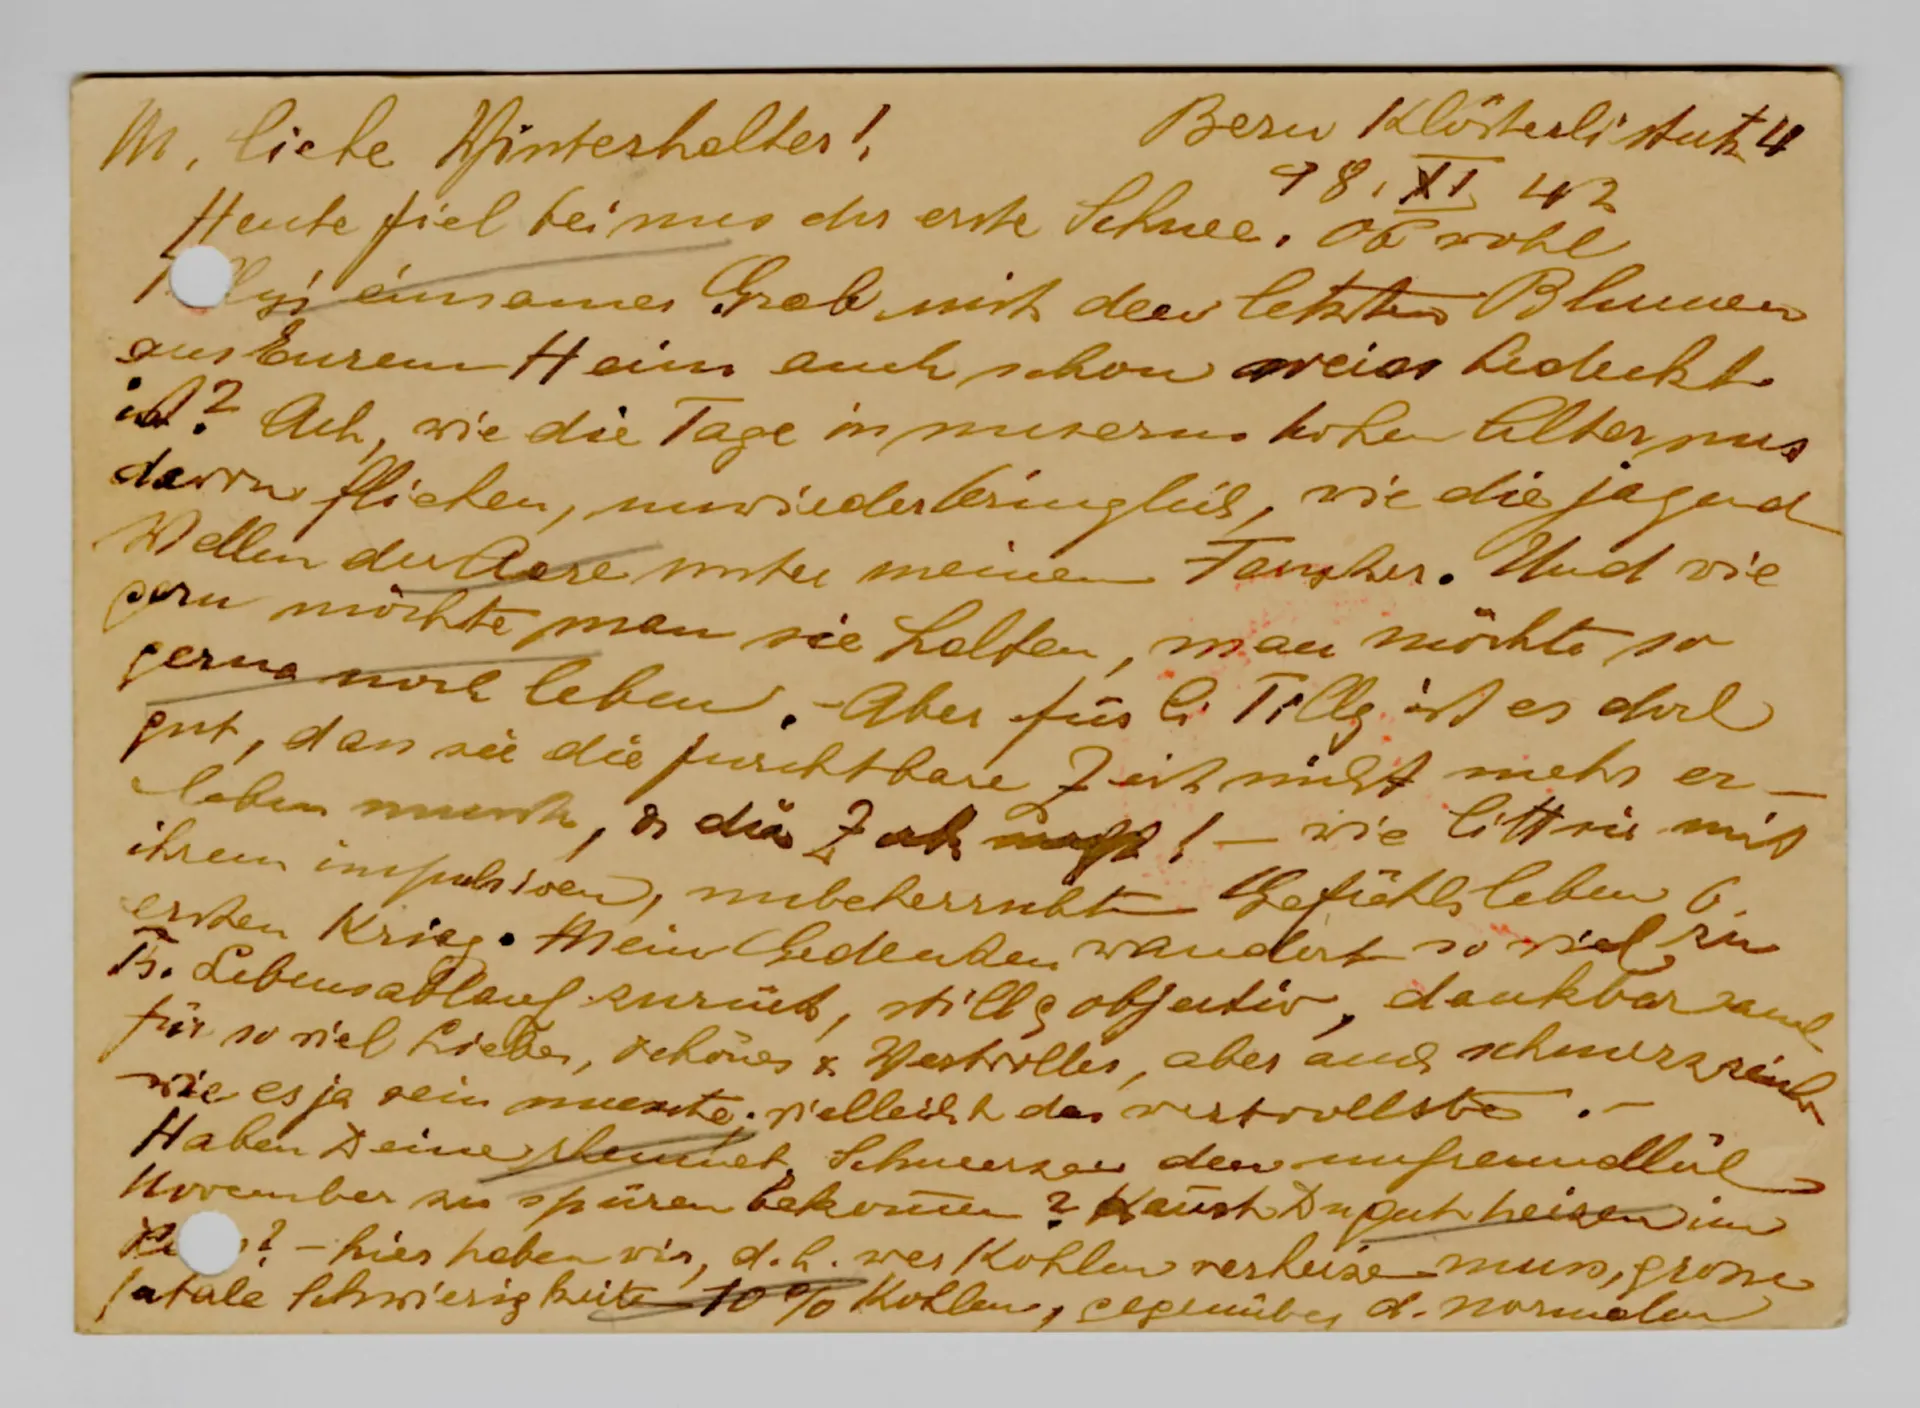 M. liebe Winterhalter!
Bern Klösterlistutz 4
8. XI 42
Heute fiel bei uns der erste Schnee. Ob wohl
einsames Grab mit den letzten Blumen
aus Eurem Heim auch schon weiss bedeckt
ist? Ach, wie die Tage in unserem hohen Alter uns
davon fliehen, unwiederbringlich, wie die jagend
Wellen der Aare unter meinem Fenster. Und wie
gern möchte man sie halten, man möchte so
gerne noch leben. - Aber für l. Tilly ist es doch
gut, dass sie die furchtbare Zeit nicht mehr er-
leben musste, die ! - wie litt sie mit
ihrem impulsiven, unbeherrscht Gefühlsleben b.
ersten Krieg. Mein Gedenken wandert so viel zu
Lebensablauf zurück, still & objectiv, dankbar
für so viel Liebes, Schönes & Wertvolles, aber auch
wie es ja sein musste, vielleicht das wertvollste. -
Haben Deine rheumat. Schmerzen den unfreundlich
November zu spüren bekommen? Kannst Du gut heizen im
? - hier haben wir, d. h. wer Kohlen verheizen muss, grosse
fatale Schwierigkeiten 10% Kohlen, gegenüber d. normalen